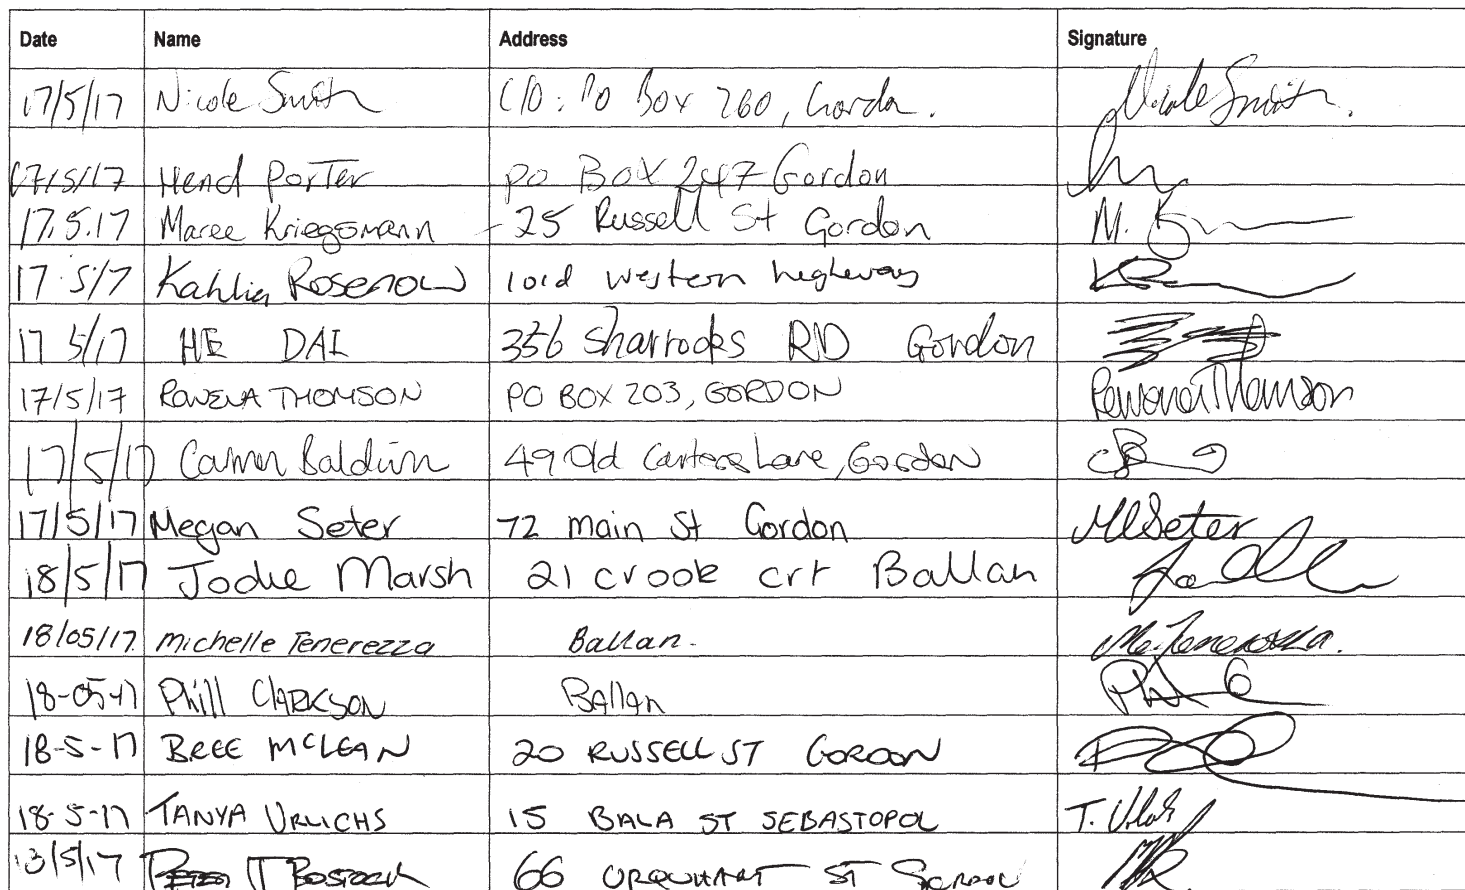 Date Name Address Signature
17/5/17 Nicole Smith C/O: PO Box 260, Gordon. Nicole Smith.
17/5/17 Hend Porter PO Box 247 Gordon
17.5.17 Maree Kriegsmann - 25 Russell St Gordon M.
17.5/7 Kahlia Rosenow western highway
17 5/17 HE DAI 356 Sharrocks RD Gordon
17/5/17 ROWENA THOMSON PO BOX 203, GORDON Rowena Thomson
17/5/17 Baldwin 49 Old Carters Lane, Gordon
17/5/17 Megan Seter 72 main St Gordon MSeter
18/5/17 Jodie Marsh 21 crook crt Ballan
18/05/17. Michelle Tenerezza Ballan. M. Tenerezza.
18-05-17 Phill CLARKSON Ballan
18-5-17 BREE MCLEAN 20 RUSSELL ST GORDON
18-5-17 TANYA URLICHS 15 BALA ST SEBASTOPOL T.
13/5/17 T BOSTOCK 66 URQUHART ST